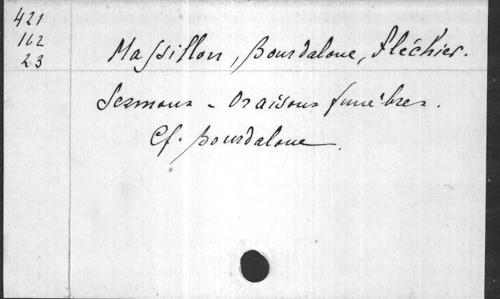 421
162
23
Massillon, Bourdaloue, Fléchier.
Sermons - Oraisons funèbres.
Cf. Bourdaloue.